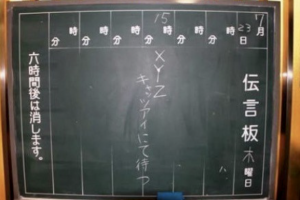 7月
23日
木曜日
伝言板
時 分
時 分
15時 分
時 分
時 分
時 分
時 分
XYZ
キャッツアイにて待つ
六時間後は消します。